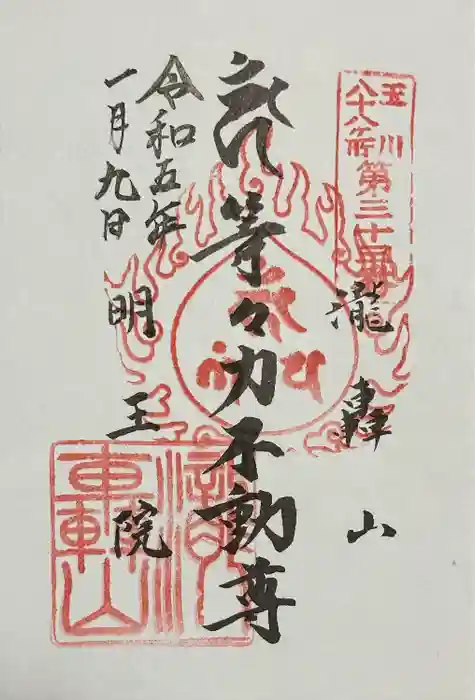 玉川
八十八ヶ所第三十番
瀧轟山
等々力不動尊
明王院
令和五年
一月九日
瀧
轟山